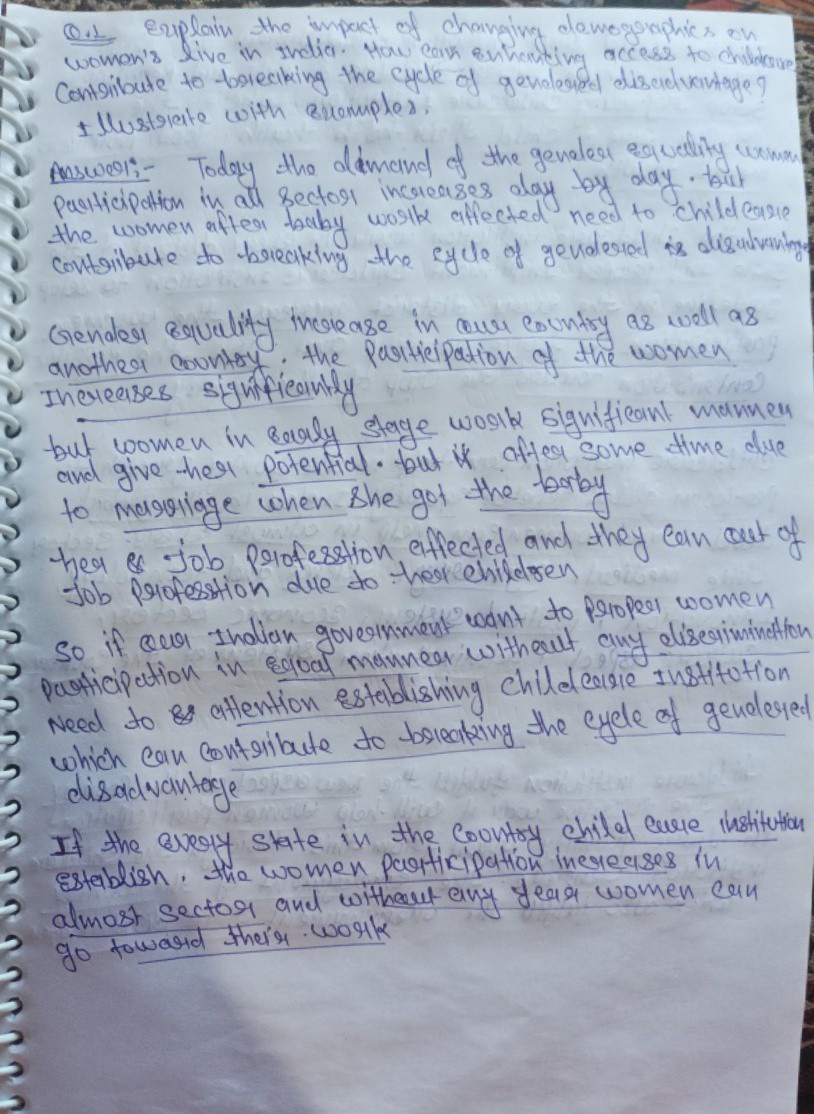 Q.1 Explain the impact of changing demographics on
women's live in India. How can enhancing access to childcare
Contribute to breaking the cycle of gendered disadvantage?
Illustrate with examples.
Answer:- Today the demand of the gender equality women
participation in all sector increases day by day. but
the women after baby work affected need to childcare
contribute to breaking the cycle of gendered is disadvantage
Gender equality increase in our country as well as
another country. the participation of the women
Increases significantly
but women in early stage work significant manner
and give her potential. but after some time due
to marriage when she got the baby
her Job profession affected and they can out of
Job profession due to her children
So if our Indian government want to proper women
participation in equal manner without any discrimination
Need to attention establishing childcare institution
which can contribute to breaking the cycle of gendered
disadvantage
If the every state in the country child care institution
establish. the women participation increases in
almost sector and without any fear women can
go toward their work